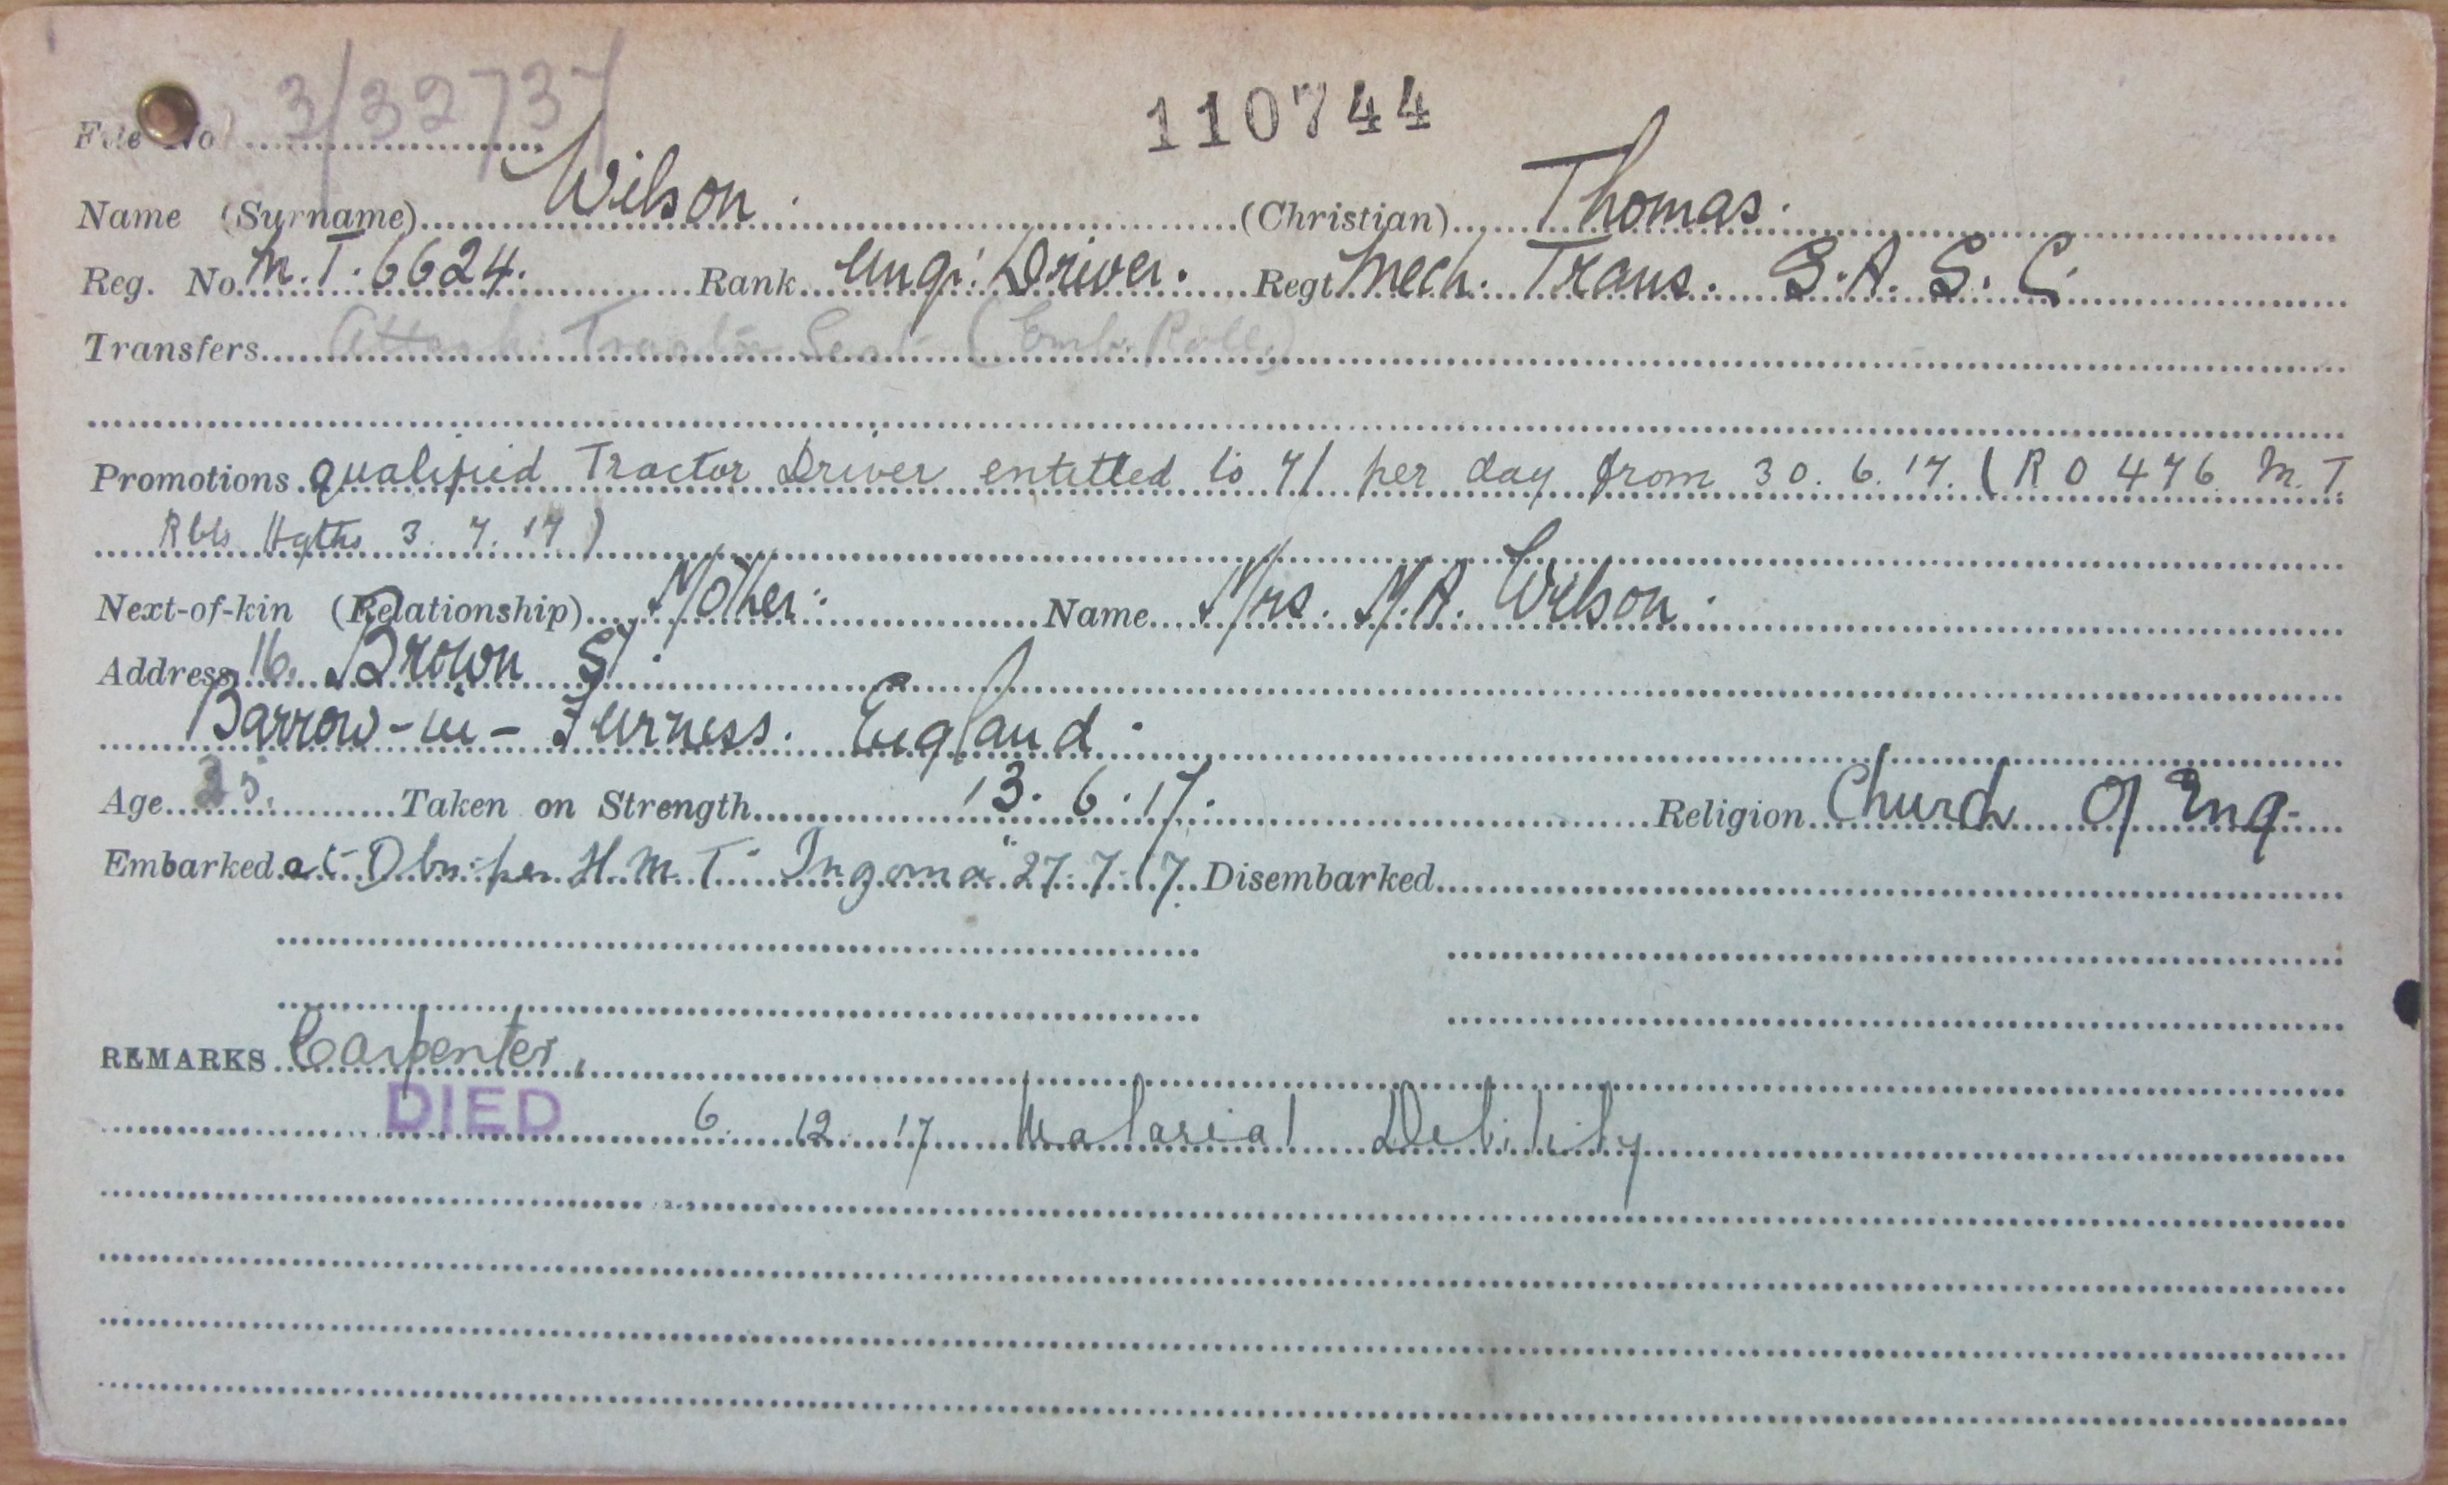 110744
File No. 3/32737
Name (Surname) Wilson. (Christian) Thomas.
Reg. No. M.T. 6624. Rank Driver. Regt Mech. Trans. S.A.S.C.
Transfers Attach: Tractor Sect (Emb. Roll)
Promotions qualified Tractor Driver entitled to 7/ per day from 30.6.17. (R O 476 M.T.
Rbts 3.7.17)
Next-of-kin (Relationship) Mother: Name Mrs. M.A. Wilson.
Address 16. Brown St.
Barrow-in-Furness. England.
Age 25. Taken on Strength 13.6.17. Religion Church Of Eng.
Embarked at Dbn: per H.M.T. "Ingoma" 27.7.17. Disembarked
REMARKS Carpenter,
DIED 6.12.17 Malarial Debility